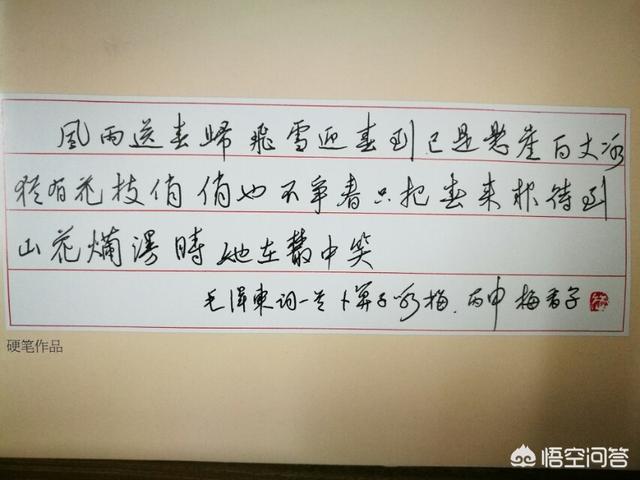 風雨送春歸飛雪迎春到已是懸崖百丈冰
猶有花枝俏俏也不爭春只把春来報待到
山花爛漫時她在叢中笑
毛澤東词一首卜算子咏梅.丙申梅香子
硬笔作品
悟空问答